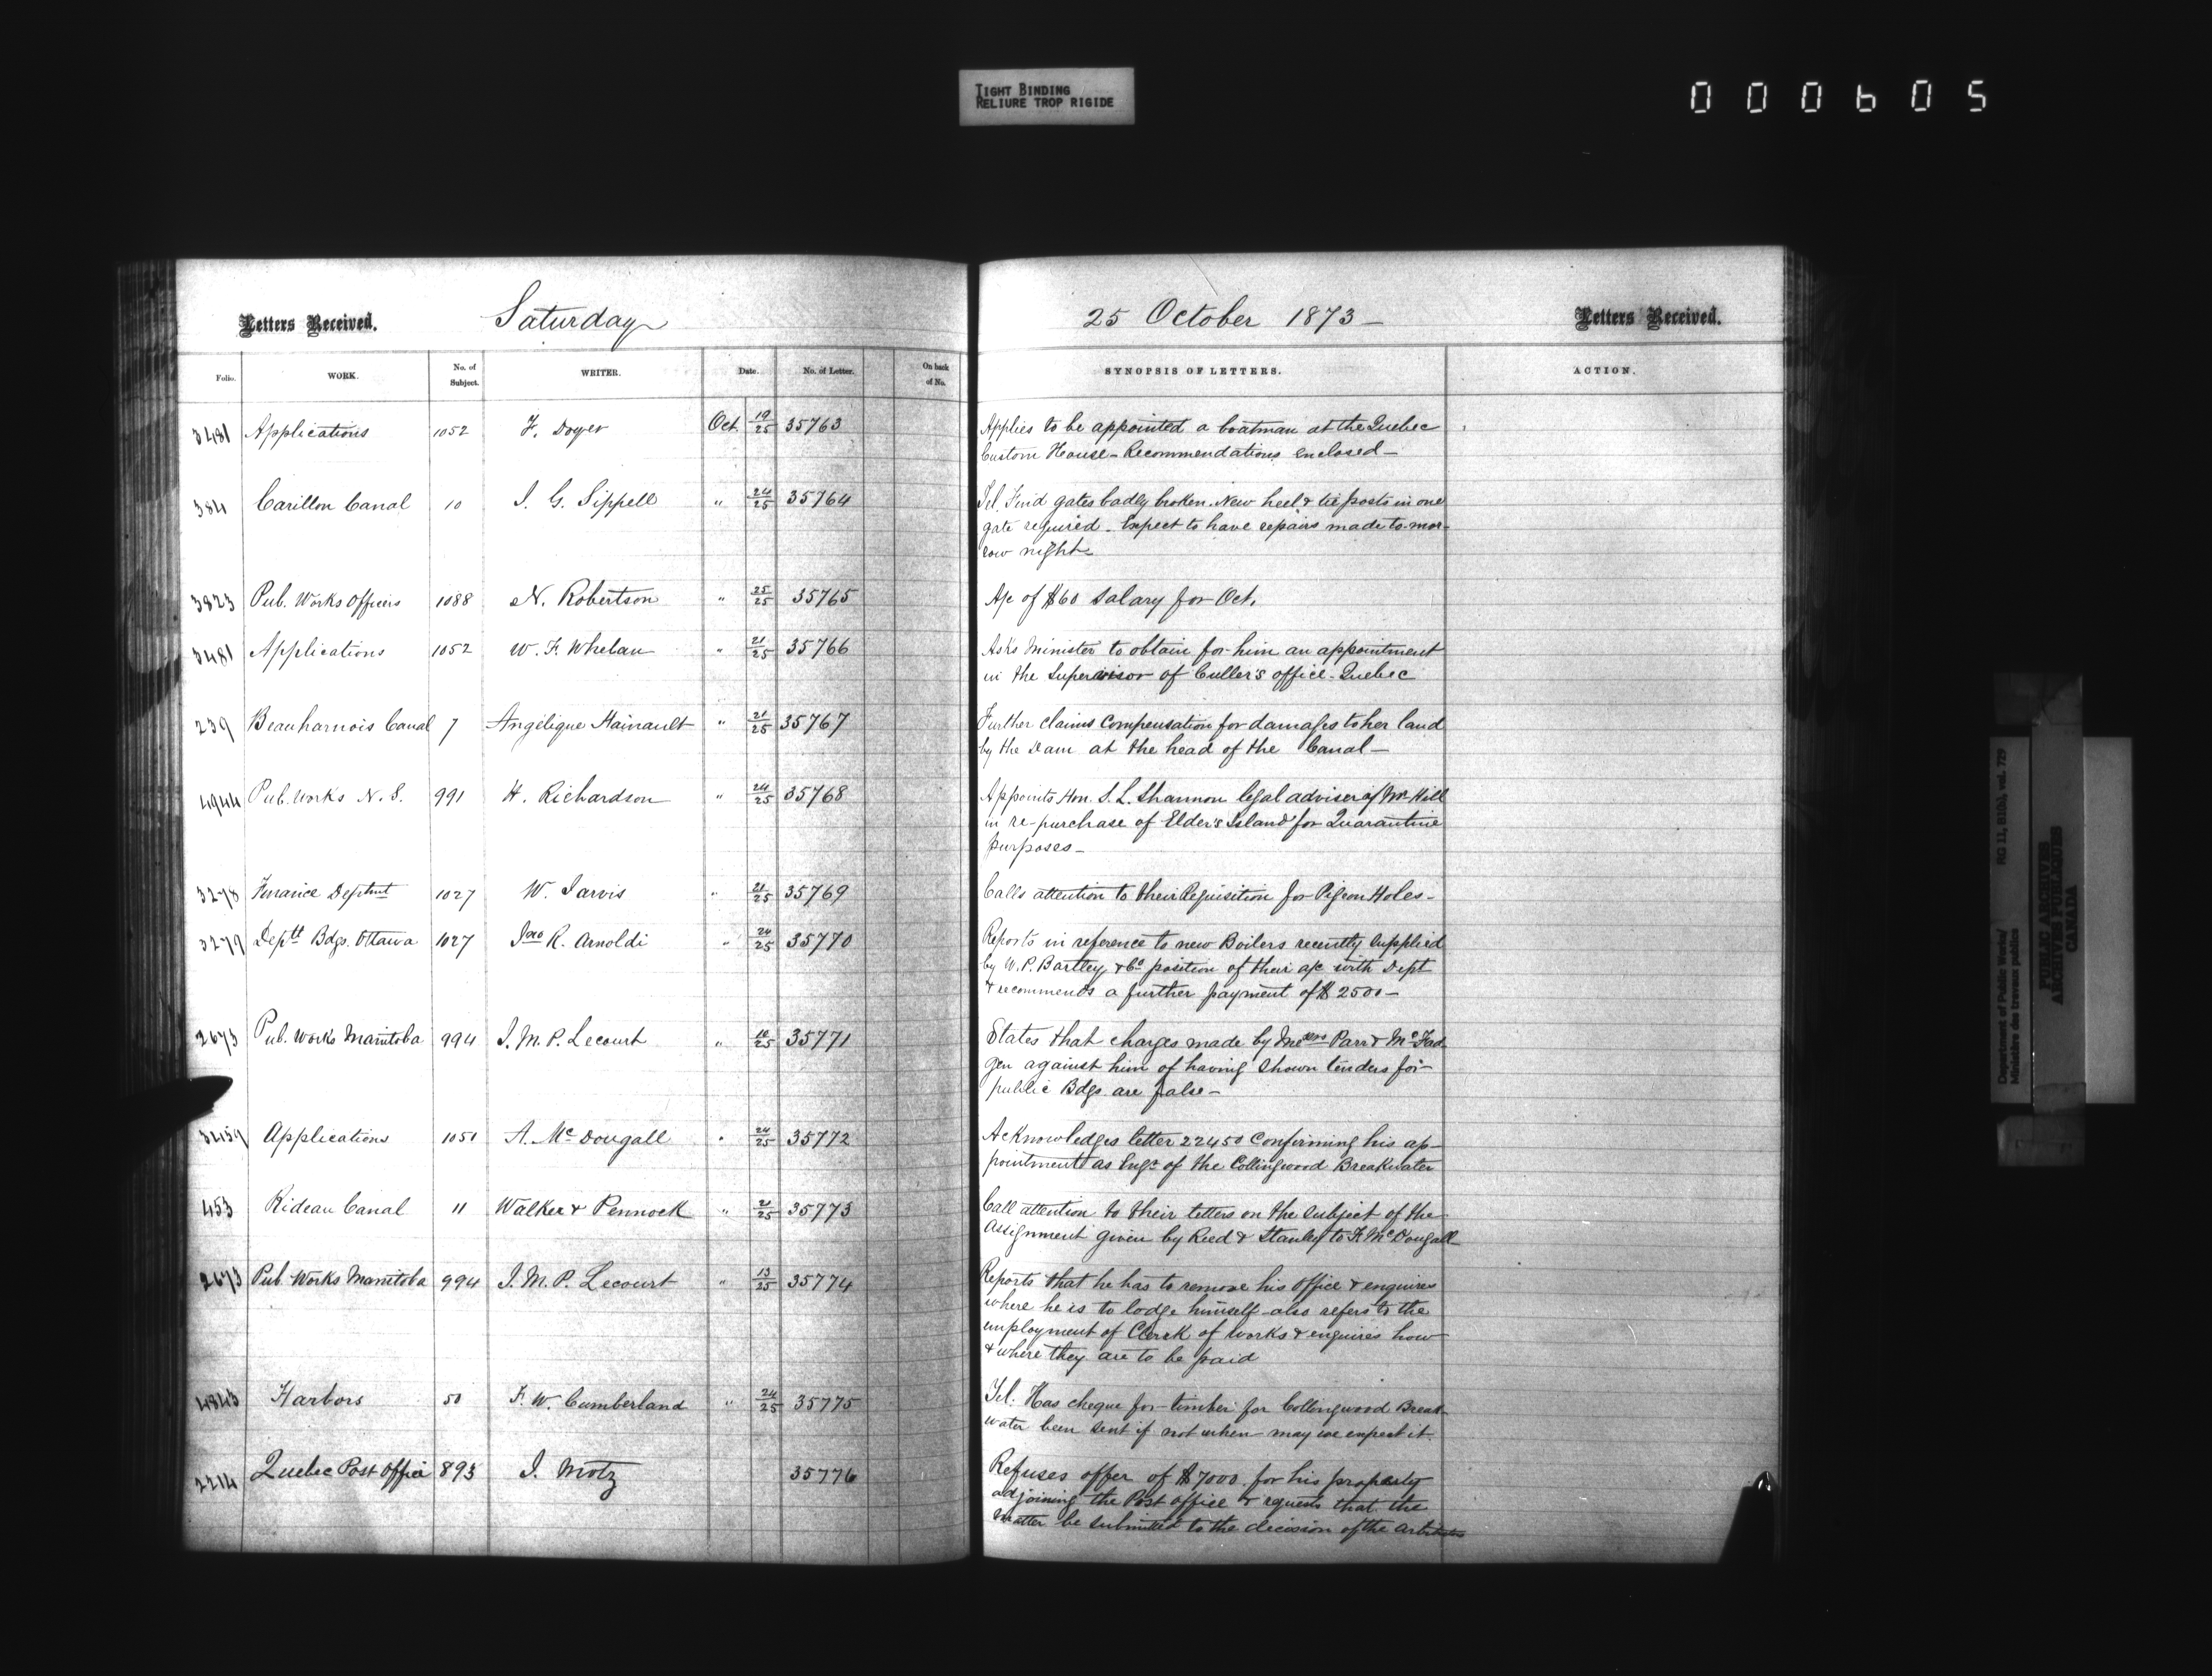 TIGHT BINDING
RELIURE TROP RIGIDE
000605
Letters Received. Saturday 25 October 1873 - Letters Received.
Folio. WORK. No. of Subject. WRITER. Date. No. of Letter. On back of No. SYNOPSIS OF LETTERS. ACTION.
3481 Applications 1052 F. Doyer Oct 19/25 35763 Applies to be appointed a boatman at the Quebec
Custom House - Recommendations enclosed -
384 Carillon Canal 10 J. G. Sippell " 24/25 35764 Tel. Find gates badly broken. New heel & tie posts in one
gate required - Expect to have repairs made to-mor-
row night -
3823 Pub. Works Officers 1088 N. Robertson " 25/25 35765 A/c of $60 Salary for Oct.
3481 Applications 1052 W. F. Whelan " 21/25 35766 Asks Minister to obtain for him an appointment
in the Supervisor of Culler's office - Quebec
239 Beauharnois Canal 7 Angélique Hainault " 21/25 35767 Further claims compensation for damages to her land
by the Dam at the head of the Canal -
4944 Pub. Works N. S. 991 H. Richardson " 24/25 35768 Appoints Hon. S. L. Shannon legal adviser of Mr Hill
in re-purchase of Elder's Island for Quarantine
purposes -
3278 Finance Deptmt 1027 W. Jarvis " 21/25 35769 Calls attention to their Requisition for Pigeon Holes -
3279 Deptt Bdgs. Ottawa 1027 Jno R. Arnoldi " 24/25 35770 Reports in reference to new Boilers recently supplied
by W. P. Bartley & Co position of their a/c with Dept
& recommends a further payment of $2500 -
2673 Pub. Works Manitoba 994 J. M. P. Lecourt " 10/25 35771 States that charges made by Messrs Parr & McFad-
gen against him of having shown tenders for
public Bdgs are false -
3459 Applications 1051 A. McDougall " 24/25 35772 Acknowledges letter 22450 confirming his ap-
pointment as Engr of the Collingwood Breakwater
453 Rideau Canal 11 Walker & Pennock " 21/25 35773 Call attention to their letters on the subject of the
Assignment given by Reed & Stanley to F. McDougall
2673 Pub. Works Manitoba 994 J. M. P. Lecourt " 13/25 35774 Reports that he has to remove his office & enquires
where he is to lodge himself also refers to the
employment of Clerk of Works & enquires how
& where they are to be paid
4843 Harbors 50 F. W. Cumberland " 24/25 35775 Tel: Has cheque for timber for Collingwood Break-
water been sent if not when may we expect it.
2214 Quebec Post Office 893 J. Motz 35776 Refuses offer of $7000 for his property
adjoining the Post office & requests that the
matter be submitted to the decision of the arbitrators
Department of Public Works/ RG 11, B1(b), vol. 729
Ministère des travaux publics
PUBLIC ARCHIVES
ARCHIVES PUBLIQUES
CANADA